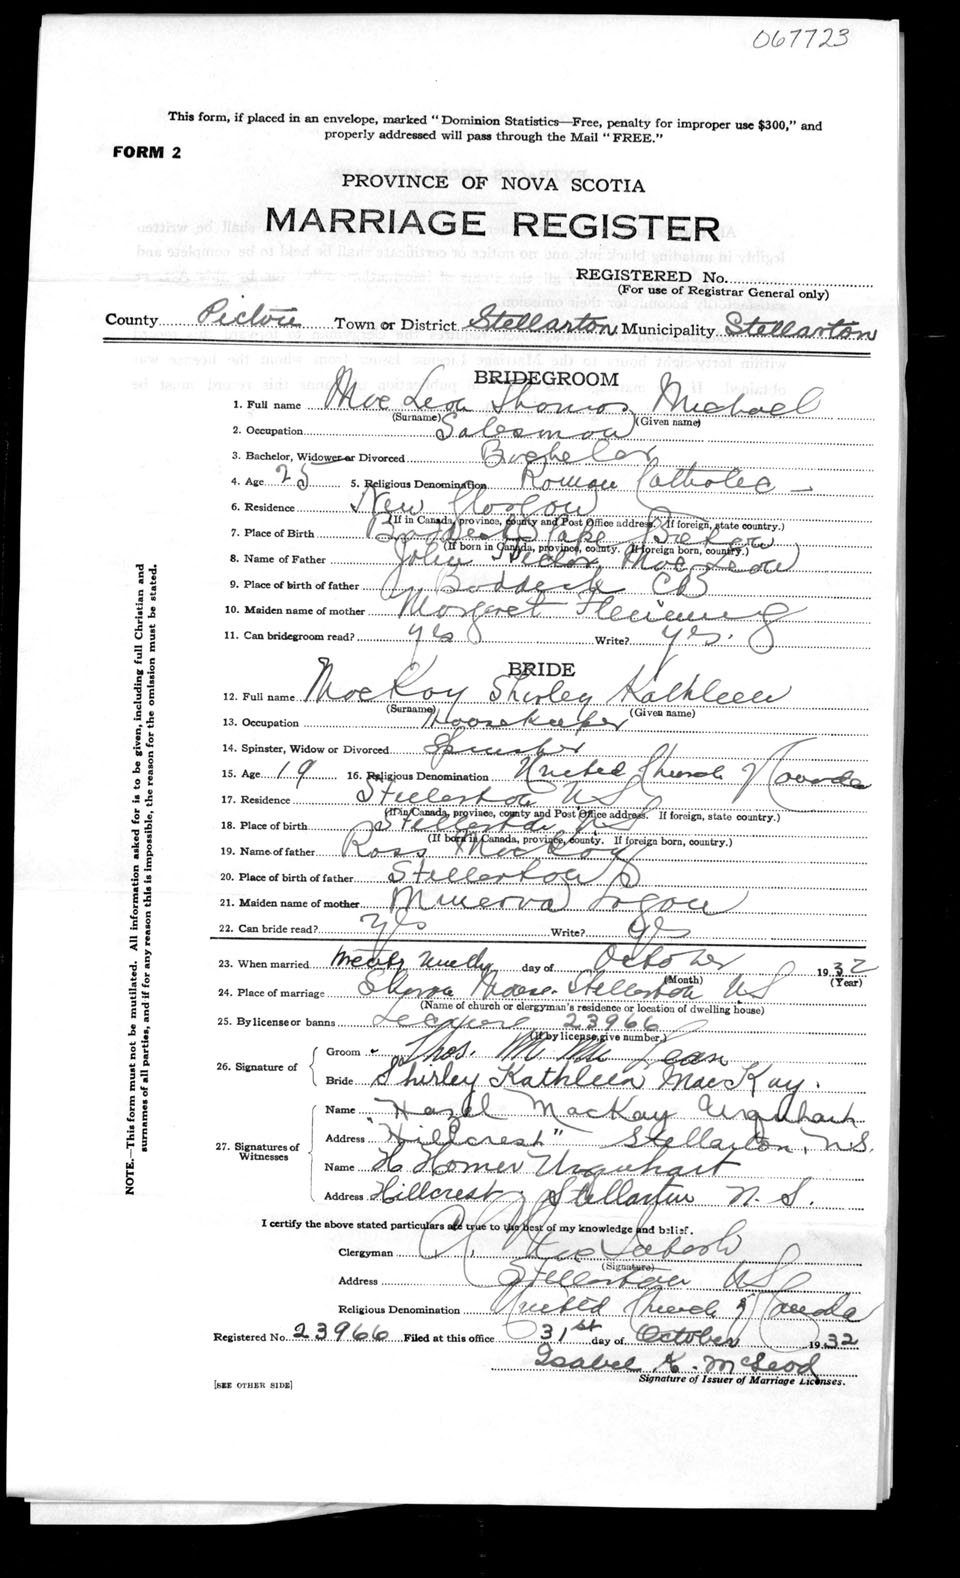 067723
This form, if placed in an envelope, marked "Dominion Statistics—Free, penalty for improper use $300," and
properly addressed will pass through the Mail "FREE."
FORM 2
PROVINCE OF NOVA SCOTIA
MARRIAGE REGISTER
REGISTERED No.
(For use of Registrar General only)
County Pictou Town or District Stellarton Municipality Stellarton
BRIDEGROOM
1. Full name MacLean Thomas Michael
(Surname) (Given name)
2. Occupation Salesman
3. Bachelor, Widower or Divorced Bachelor
4. Age 25 5. Religious Denomination Roman Catholic
6. Residence New Glasgow
(If in Canada, province, county and Post Office address. If foreign, state country.)
7. Place of Birth Baddeck Cape Breton
(If born in Canada, province, county. If foreign born, country.)
8. Name of Father John Hector MacLean
9. Place of birth of father Baddeck CB
10. Maiden name of mother Margaret Fleming
11. Can bridegroom read? yes Write? yes.
BRIDE
12. Full name MacKay Shirley Kathleen
(Surname) (Given name)
13. Occupation Housekeeper
14. Spinster, Widow or Divorced Spinster
15. Age 19 16. Religious Denomination United Church of Canada
17. Residence Stellarton NS
(If in Canada, province, county and Post Office address. If foreign, state country.)
18. Place of birth Stellarton NS
(If born in Canada, province, county. If foreign born, country.)
19. Name of father Ross MacKay
20. Place of birth of father Stellarton
21. Maiden name of mother Minerva Logan
22. Can bride read? yes Write? yes
23. When married day of October 1932
(Month) (Year)
24. Place of marriage Manse Stellarton NS
(Name of church or clergyman's residence or location of dwelling house)
25. By license or banns License 23966
(If by license, give number.)
26. Signature of
Groom Thos. M. MacLean
Bride Shirley Kathleen MacKay.
27. Signatures of Witnesses
Name Hazel MacKay Urquhart
Address "Hillcrest" Stellarton, N.S.
Name H Homer Urquhart
Address Hillcrest, Stellarton N. S.
I certify the above stated particulars are true to the best of my knowledge and belief.
Clergyman
(Signature)
Address Stellarton NS
Religious Denomination United Church of Canada
Registered No. 23966 Filed at this office 31st day of October 1932
Isabel K. McLeod
Signature of Issuer of Marriage Licenses.
[SEE OTHER SIDE]
NOTE.—This form must not be mutilated. All information asked for is to be given, including full Christian and
surnames of all parties, and if for any reason this is impossible, the reason for the omission must be stated.